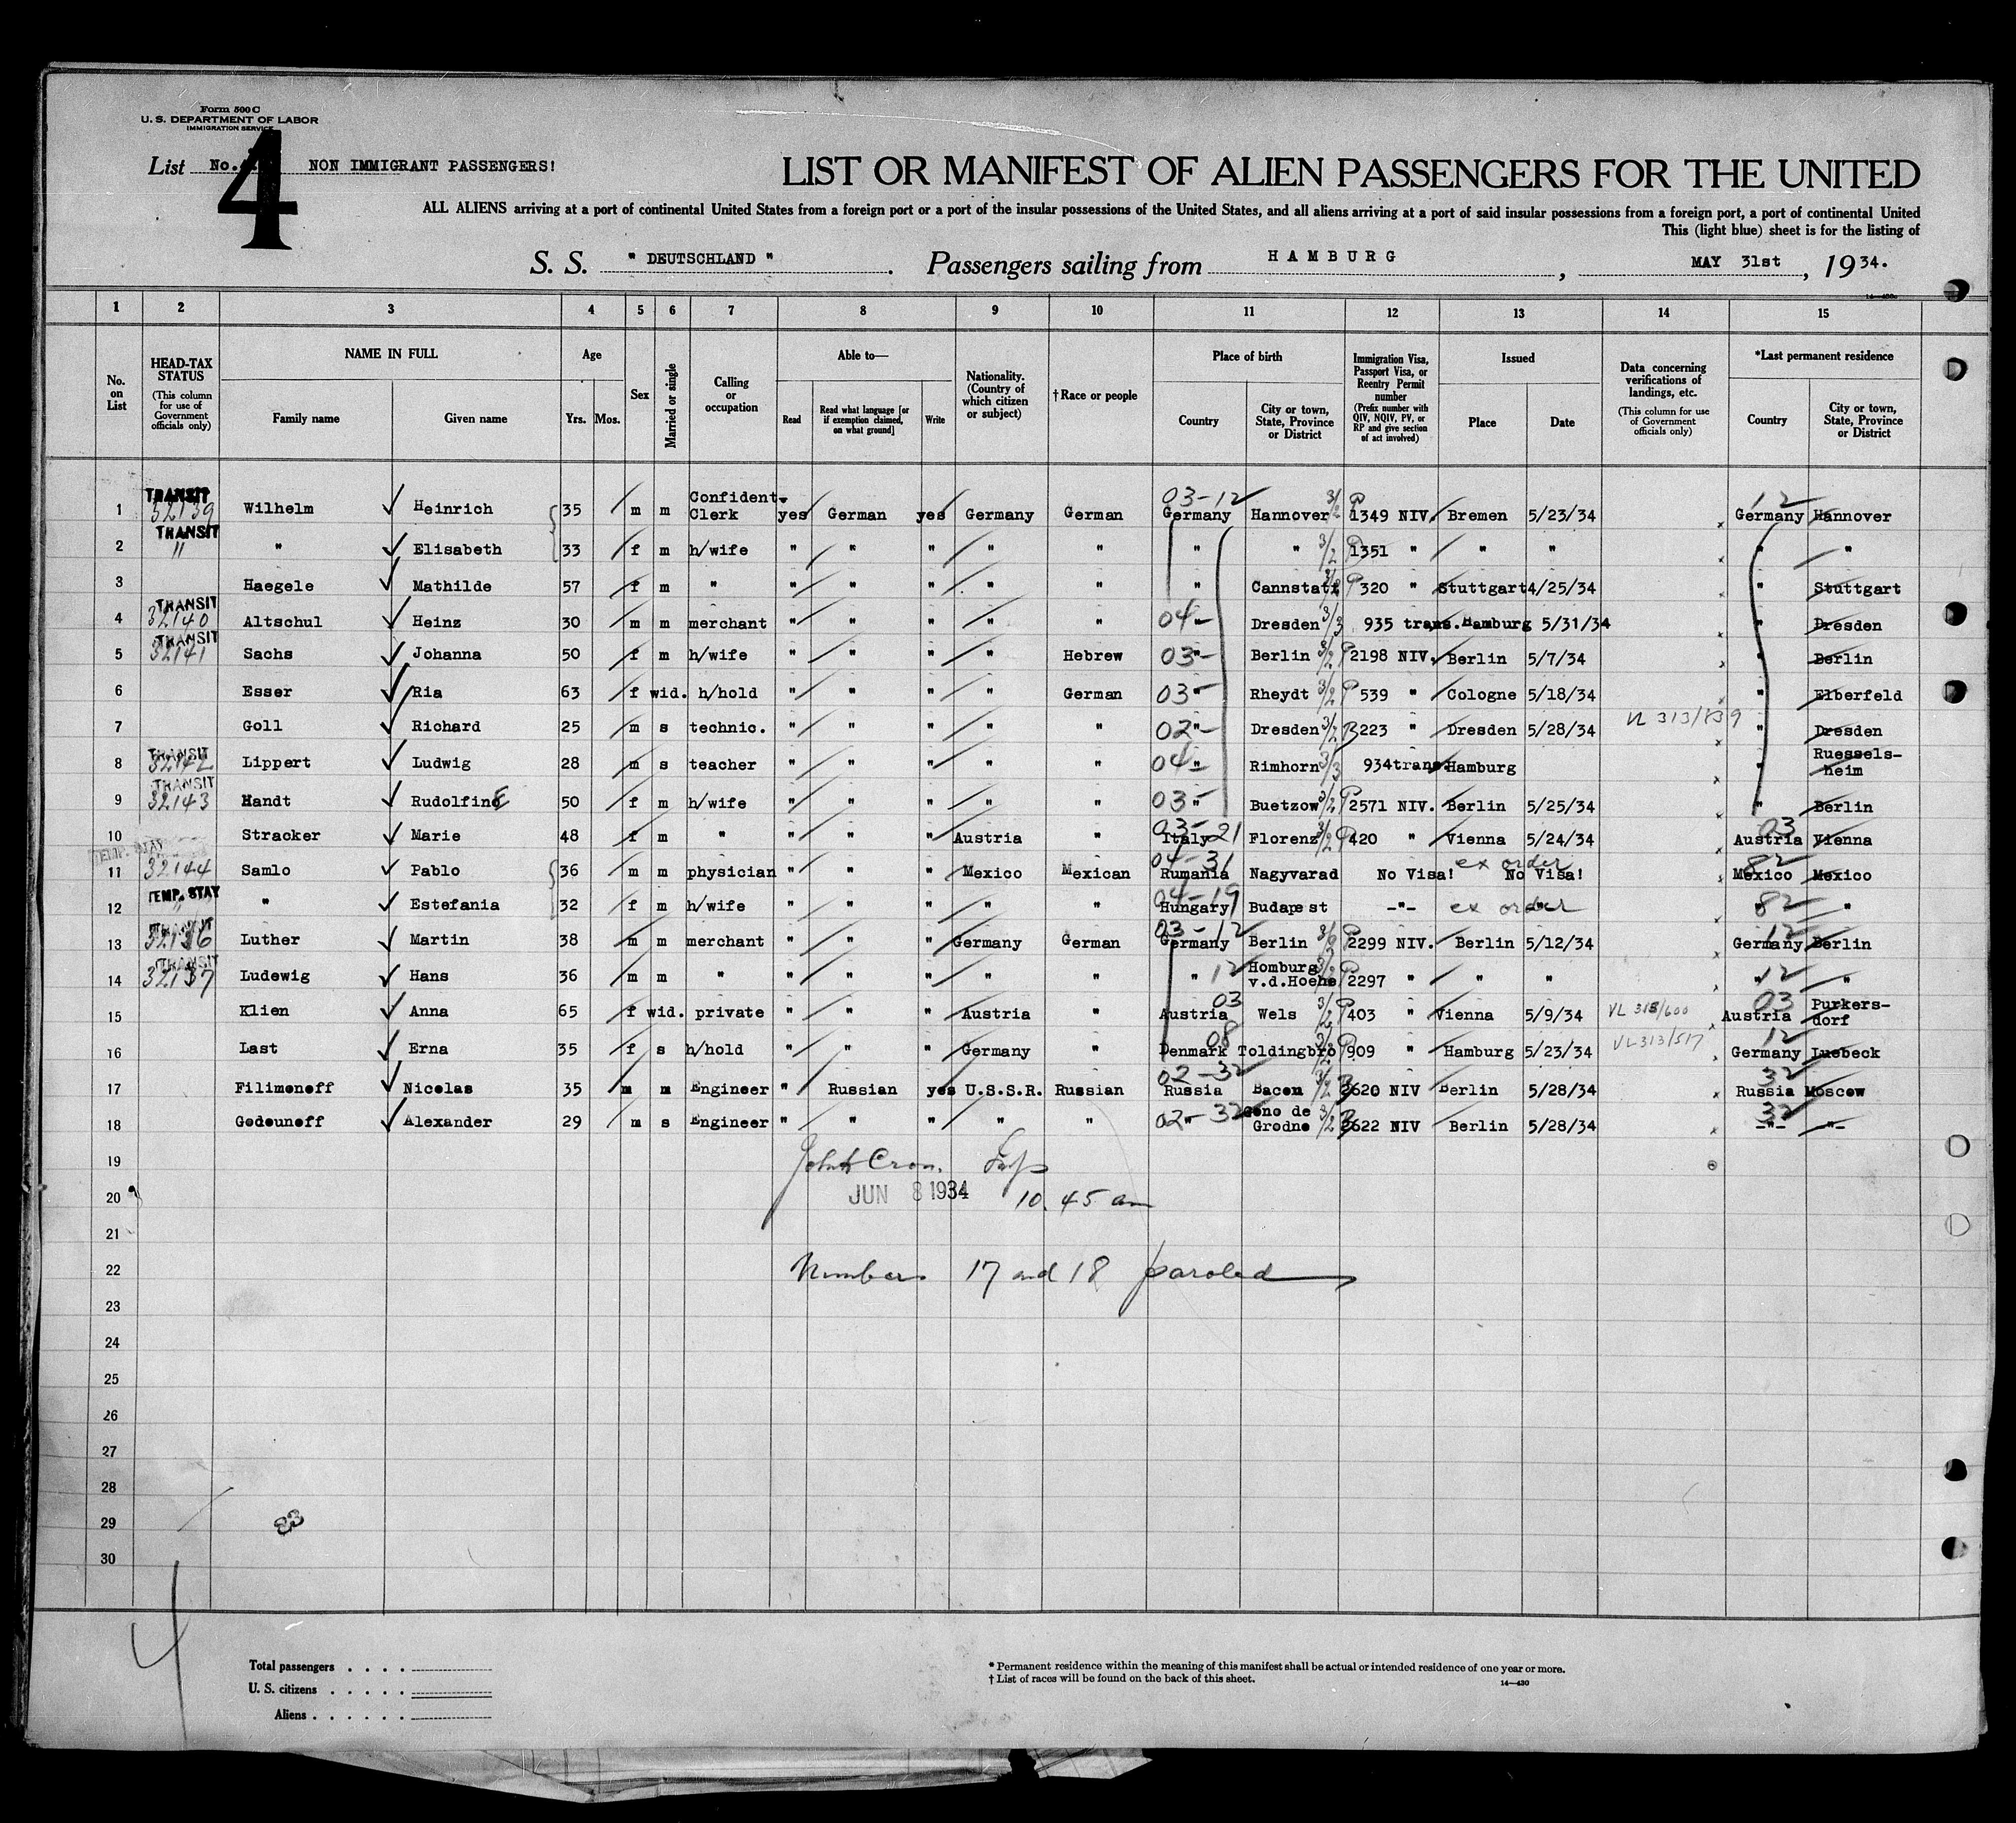 Form 500 C
U. S. DEPARTMENT OF LABOR
IMMIGRATION SERVICE
List No. 4 NON IMMIGRANT PASSENGERS!
LIST OR MANIFEST OF ALIEN PASSENGERS FOR THE UNITED
ALL ALIENS arriving at a port of continental United States from a foreign port or a port of the insular possessions of the United States, and all aliens arriving at a port of said insular possessions from a foreign port, a port of continental United
This (light blue) sheet is for the listing of
S. S. " DEUTSCHLAND " . Passengers sailing from HAMBURG , MAY 31st , 1934.
1 2 3 4 5 6 7 8 9 10 11 12 13 14 15
No. on List
HEAD-TAX STATUS (This column for use of Government officials only)
NAME IN FULL
Family name Given name
Age
Yrs. Mos.
Sex
Married or single
Calling or occupation
Able to—
Read Read what language [or if exemption claimed, on what ground] Write
Nationality. (Country of which citizen or subject)
† Race or people
Place of birth
Country City or town, State, Province or District
Immigration Visa, Passport Visa, or Reentry Permit number (Prefix number with QIV, NQIV, PV, or RP and give section of act involved)
Issued
Place Date
Data concerning verifications of landings, etc. (This column for use of Government officials only)
*Last permanent residence
Country City or town, State, Province or District
1 TRANSIT 32139 Wilhelm Heinrich 35 m m Confident. Clerk yes German yes Germany German 03-12 Germany Hannover 3/2 P 1349 NIV. Bremen 5/23/34 12 Germany Hannover
2 TRANSIT " " Elisabeth 33 f m h/wife " " " " " " " 3/2 P 1351 " " " " "
3 Haegele Mathilde 57 f m " " " " " " " Cannstatt 3/2 P 320 " Stuttgart 4/25/34 " Stuttgart
4 TRANSIT 32140 Altschul Heinz 30 m m merchant " " " " " 04- " Dresden 3/3 935 trans. Hamburg 5/31/34 " Dresden
5 TRANSIT 32141 Sachs Johanna 50 f m h/wife " " " " Hebrew 03- " Berlin 3/2 P 2198 NIV. Berlin 5/7/34 " Berlin
6 Esser Ria 63 f wid. h/hold " " " " German 03- " Rheydt 3/2 P 539 " Cologne 5/18/34 " Elberfeld
7 Goll Richard 25 m s technic. " " " " " 02- " Dresden 3/2 B 223 " Dresden 5/28/34 VL 313/839 " Dresden
8 TRANSIT 32142 Lippert Ludwig 28 m s teacher " " " " " 04- " Rimhorn 3/3 934 trans. Hamburg " Ruessels-heim
9 TRANSIT 32143 Handt Rudolfine 50 f m h/wife " " " " " 03- " Buetzow 3/2 P 2571 NIV. Berlin 5/25/34 " Berlin
10 Stracker Marie 48 f m " " " " Austria " 03-21 Italy Florenz 3/2 P 420 " Vienna 5/24/34 03 Austria Vienna
11 TEMP. STAY 32144 Samlo Pablo 36 m m physician " " " Mexico Mexican 04-31 Rumania Nagyvarad No Visa! ex order No Visa! 82 Mexico Mexico
12 TEMP. STAY " " Estefania 32 f m h/wife " " " " " 04-19 Hungary Budapest -"- ex order " 82 " "
13 TRANSIT 32136 Luther Martin 38 m m merchant " " " Germany German 03-12 Germany Berlin 3/2 P 2299 NIV. Berlin 5/12/34 12 Germany Berlin
14 TRANSIT 32137 Ludewig Hans 36 m m " " " " " " " 12 Homburg v.d.Hoehe 3/2 P 2297 " " " " 12 "
15 Klien Anna 65 f wid. private " " " Austria " 03 Austria Wels 3/2 P 403 " Vienna 5/9/34 VL 313/600 03 Austria Purkers-dorf
16 Last Erna 35 f s h/hold " " " Germany " 08 Denmark Toldingbro 3/2 P 909 " Hamburg 5/23/34 VL 313/517 12 Germany Luebeck
17 Filimonoff Nicolas 35 m m Engineer " Russian yes U.S.S.R. Russian 02-32 Russia Bacou 3/2 2620 NIV Berlin 5/28/34 32 Russia Moscow
18 Godounoff Alexander 29 m s Engineer " " " " " 02-32 " Gono de Grodno 3/2 2622 NIV Berlin 5/28/34 32 -"- -"-
19 John Cron. Insp
20 JUN 8 1934 10.45 am
21
22 Numbers 17 and 18 paroled
23
24
25
26
27
28
29 83
30
4
Total passengers . . . .
U. S. citizens . . . . .
Aliens . . . . . .
* Permanent residence within the meaning of this manifest shall be actual or intended residence of one year or more.
† List of races will be found on the back of this sheet.
14—430